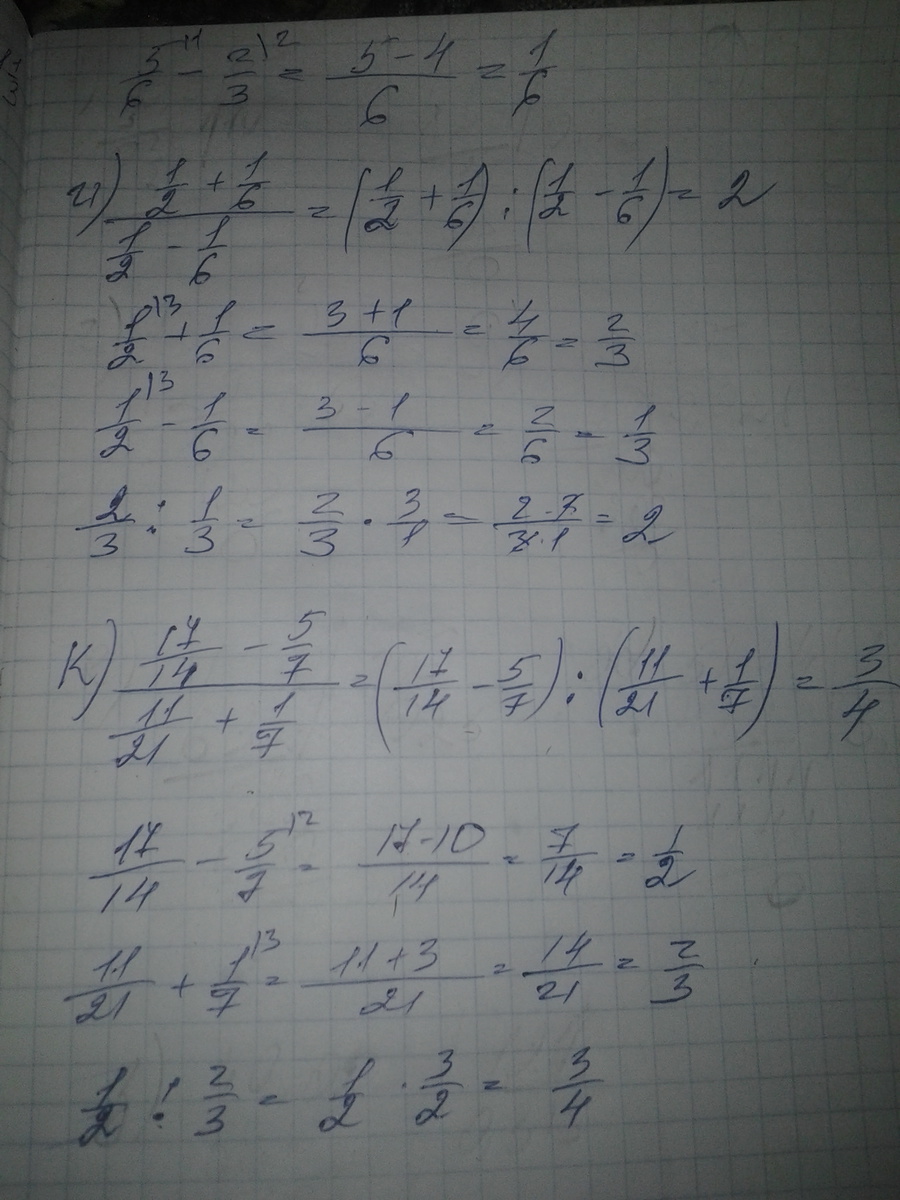 5/6 ⁾¹ - 2/3 ⁾² = (5-4)/6 = 1/6
и) (1/2 + 1/6)/(1/2 - 1/6) = (1/2 + 1/6) : (1/2 - 1/6) = 2
1/2 ⁾³ + 1/6 = (3+1)/6 = 4/6 = 2/3
1/2 ⁾³ - 1/6 = (3-1)/6 = 2/6 = 1/3
2/3 : 1/3 = 2/3 · 3/1 = (2·3)/(3·1) = 2
К) (17/14 - 5/7)/(11/21 + 1/7) = (17/14 - 5/7) : (11/21 + 1/7) = 3/4
17/14 - 5/7 ⁾² = (17-10)/14 = 7/14 = 1/2
11/21 + 1/7 ⁾³ = (11+3)/21 = 14/21 = 2/3
1/2 : 2/3 = 1/2 · 3/2 = 3/4